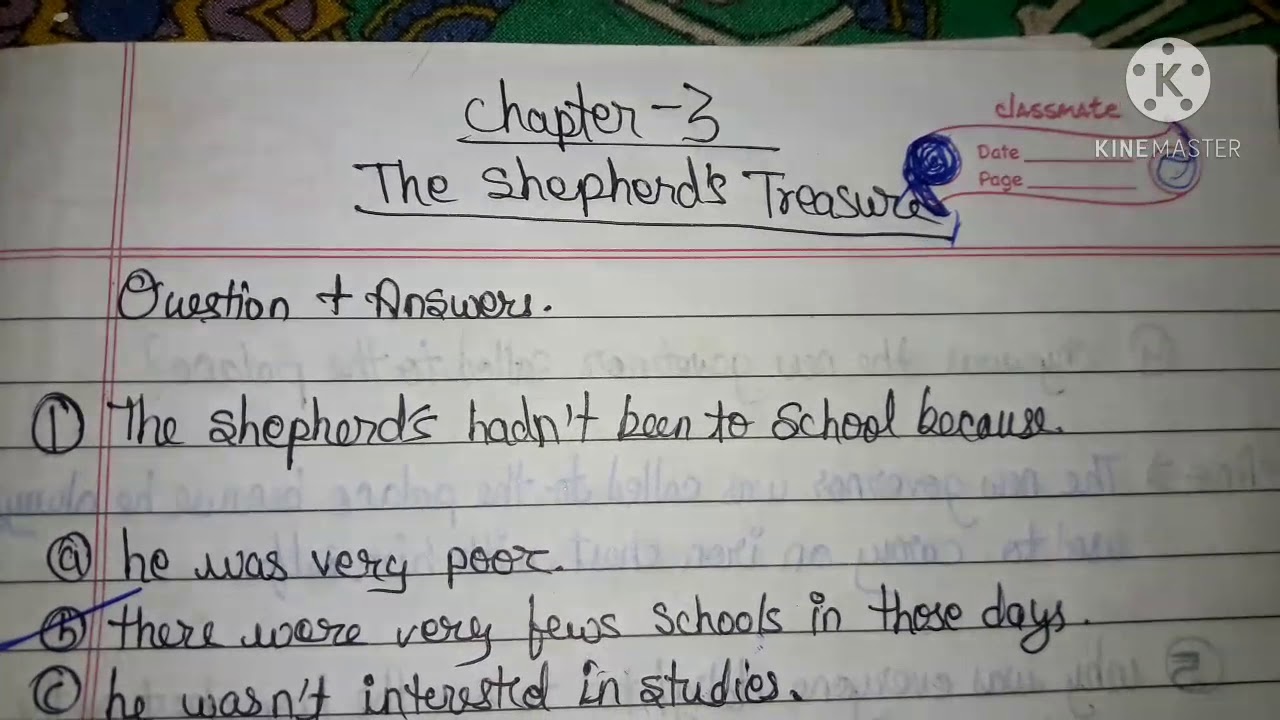 Chapter-3
The Shepherd's Treasure
classmate
Date
Page
KINEMASTER
Question + Answers.
① The shepherd's hadn't been to School because.
ⓐ he was very poor.
ⓑ there were very fews schools in those days.
ⓒ he wasn't interested in studies.